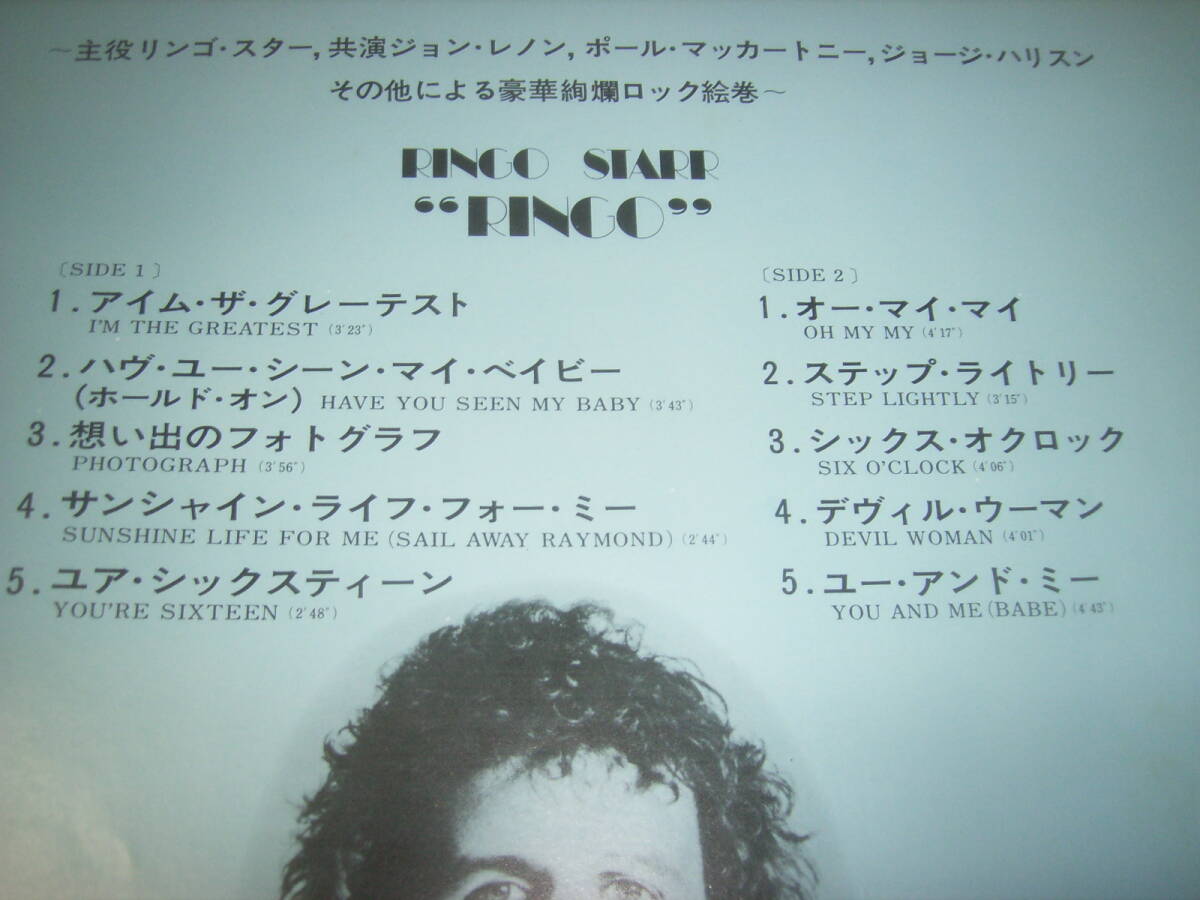 ～主役リンゴ・スター,共演ジョン・レノン,ポール・マッカートニー,ジョージ・ハリスン
その他による豪華絢爛ロック絵巻～
RINGO STARR
“RINGO”
〔SIDE 1〕
1.アイム・ザ・グレーテスト
I'M THE GREATEST (3′23″)
2.ハヴ・ユー・シーン・マイ・ベイビー
(ホールド・オン) HAVE YOU SEEN MY BABY (3′43″)
3.想い出のフォトグラフ
PHOTOGRAPH (3′56″)
4.サンシャイン・ライフ・フォー・ミー
SUNSHINE LIFE FOR ME (SAIL AWAY RAYMOND) (2′44″)
5.ユア・シックスティーン
YOU'RE SIXTEEN (2′48″)
〔SIDE 2〕
1.オー・マイ・マイ
OH MY MY (4′17″)
2.ステップ・ライトリー
STEP LIGHTLY (3′15″)
3.シックス・オクロック
SIX O'CLOCK (4′06″)
4.デヴィル・ウーマン
DEVIL WOMAN (4′01″)
5.ユー・アンド・ミー
YOU AND ME (BABE) (4′43″)